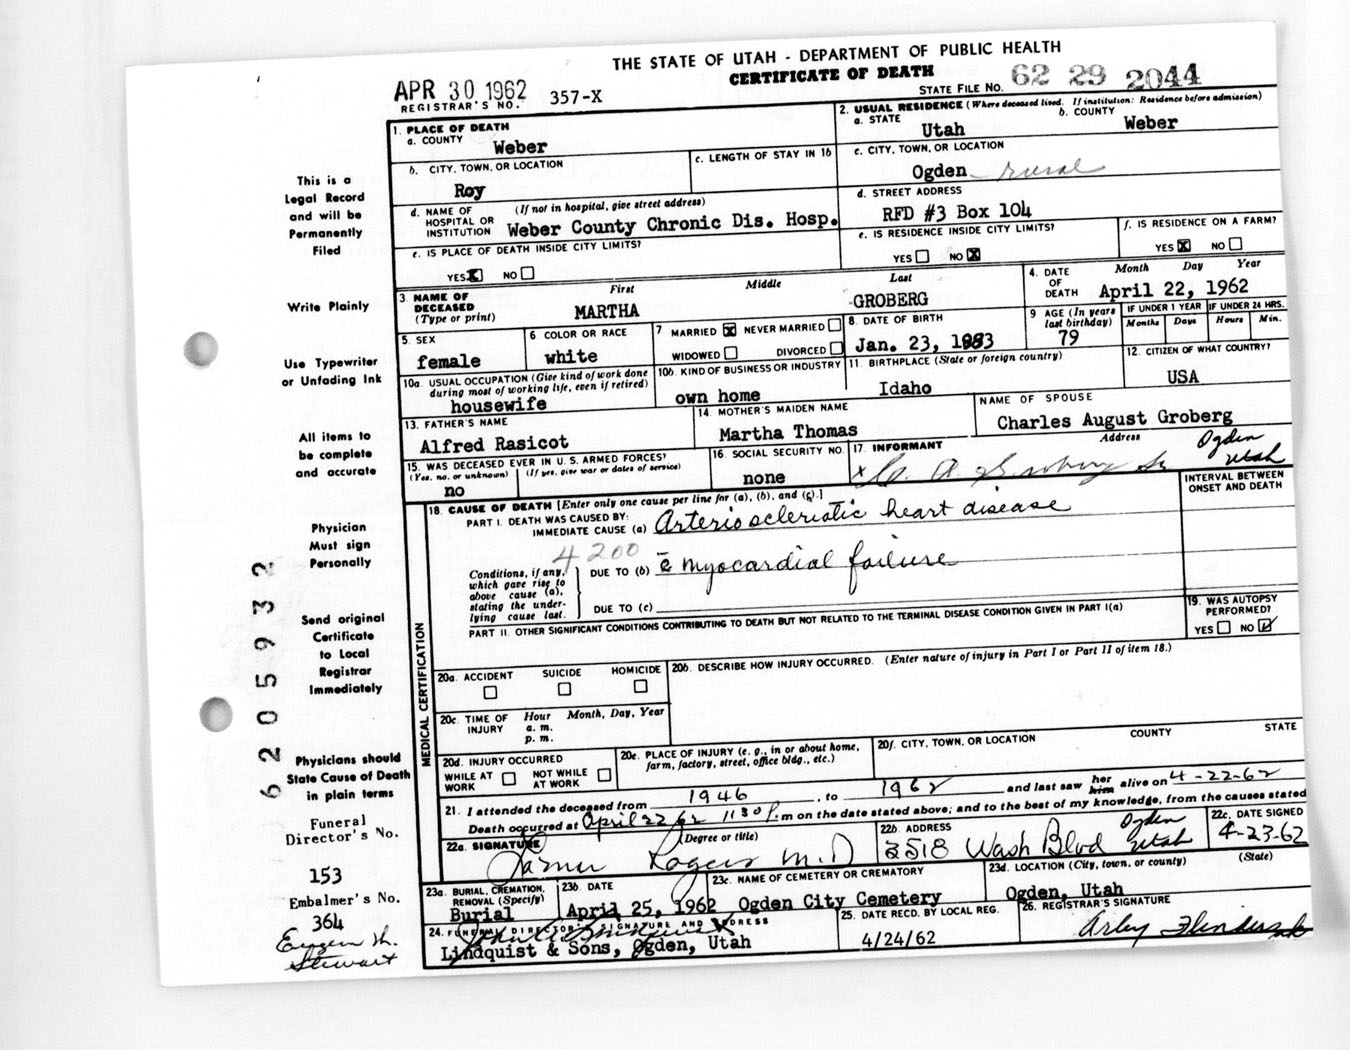 THE STATE OF UTAH - DEPARTMENT OF PUBLIC HEALTH
CERTIFICATE OF DEATH
APR 30 1962
REGISTRAR'S NO. 357-X
STATE FILE NO. 62 29 2044
This is a
Legal Record
and will be
Permanently
Filed
Write Plainly
Use Typewriter
or Unfading Ink
All items to
be complete
and accurate
Physician
Must sign
Personally
Send original
Certificate
to Local
Registrar
Immediately
Physicians should
State Cause of Death
in plain terms
Funeral
Director's No.
153
Embalmer's No.
364
Eugene H.
Stewart
6205932
1. PLACE OF DEATH
a. COUNTY Weber
b. CITY, TOWN, OR LOCATION Roy
c. LENGTH OF STAY IN 1b
d. NAME OF HOSPITAL OR INSTITUTION (If not in hospital, give street address) Weber County Chronic Dis. Hosp.
e. IS PLACE OF DEATH INSIDE CITY LIMITS?
YES X NO
2. USUAL RESIDENCE (Where deceased lived. If institution: Residence before admission)
a. STATE Utah b. COUNTY Weber
c. CITY, TOWN, OR LOCATION
Ogden rural
d. STREET ADDRESS
RFD #3 Box 104
e. IS RESIDENCE INSIDE CITY LIMITS?
YES NO X
f. IS RESIDENCE ON A FARM?
YES X NO
3. NAME OF DECEASED (Type or print) First Middle Last
MARTHA GROBERG
4. DATE OF DEATH Month Day Year
April 22, 1962
5. SEX
female
6 COLOR OR RACE
white
7 MARRIED X NEVER MARRIED
WIDOWED DIVORCED
8. DATE OF BIRTH
Jan. 23, 1883
9 AGE (In years last birthday)
79
IF UNDER 1 YEAR IF UNDER 24 HRS.
Months Days Hours Min.
10a. USUAL OCCUPATION (Give kind of work done during most of working life, even if retired)
housewife
10b. KIND OF BUSINESS OR INDUSTRY
own home
11. BIRTHPLACE (State or foreign country)
Idaho
12. CITIZEN OF WHAT COUNTRY?
USA
13. FATHER'S NAME
Alfred Rasicot
14. MOTHER'S MAIDEN NAME
Martha Thomas
NAME OF SPOUSE
Charles August Groberg
15. WAS DECEASED EVER IN U. S. ARMED FORCES?
(Yes, no, or unknown) (If yes, give war or dates of service)
no
16. SOCIAL SECURITY NO.
none
17. INFORMANT Address
x C. A. Groberg Sr Ogden Utah
MEDICAL CERTIFICATION
18. CAUSE OF DEATH [Enter only one cause per line for (a), (b), and (c).]
INTERVAL BETWEEN ONSET AND DEATH
PART I. DEATH WAS CAUSED BY:
IMMEDIATE CAUSE (a) Arterioscleriotic heart disease
4200
Conditions, if any, which gave rise to above cause (a), stating the underlying cause last.
DUE TO (b) c̄ myocardial failure
DUE TO (c)
PART II. OTHER SIGNIFICANT CONDITIONS CONTRIBUTING TO DEATH BUT NOT RELATED TO THE TERMINAL DISEASE CONDITION GIVEN IN PART I(a)
19. WAS AUTOPSY PERFORMED?
YES NO ✓
20a. ACCIDENT SUICIDE HOMICIDE
20b. DESCRIBE HOW INJURY OCCURRED. (Enter nature of injury in Part I or Part II of item 18.)
20c. TIME OF INJURY Hour Month, Day, Year
a. m.
p. m.
20d. INJURY OCCURRED
WHILE AT WORK NOT WHILE AT WORK
20e. PLACE OF INJURY (e. g., in or about home, farm, factory, street, office bldg., etc.)
20f. CITY, TOWN, OR LOCATION COUNTY STATE
21. I attended the deceased from 1946, to 1962 and last saw her him alive on 4-22-62
Death occurred at April 22 62 1130 P.m on the date stated above; and to the best of my knowledge, from the causes stated
22a. SIGNATURE (Degree or title)
Rogers M.D
22b. ADDRESS
3518 Wash Blvd Ogden Utah
22c. DATE SIGNED
4-23-62
23a. BURIAL, CREMATION, REMOVAL (Specify)
Burial
23b. DATE
April 25, 1962
23c. NAME OF CEMETERY OR CREMATORY
Ogden City Cemetery
23d. LOCATION (City, town, or county) (State)
Ogden, Utah
24. FUNERAL DIRECTOR'S SIGNATURE AND ADDRESS
Lindquist & Sons, Ogden, Utah
25. DATE RECD. BY LOCAL REG.
4/24/62
26. REGISTRAR'S SIGNATURE